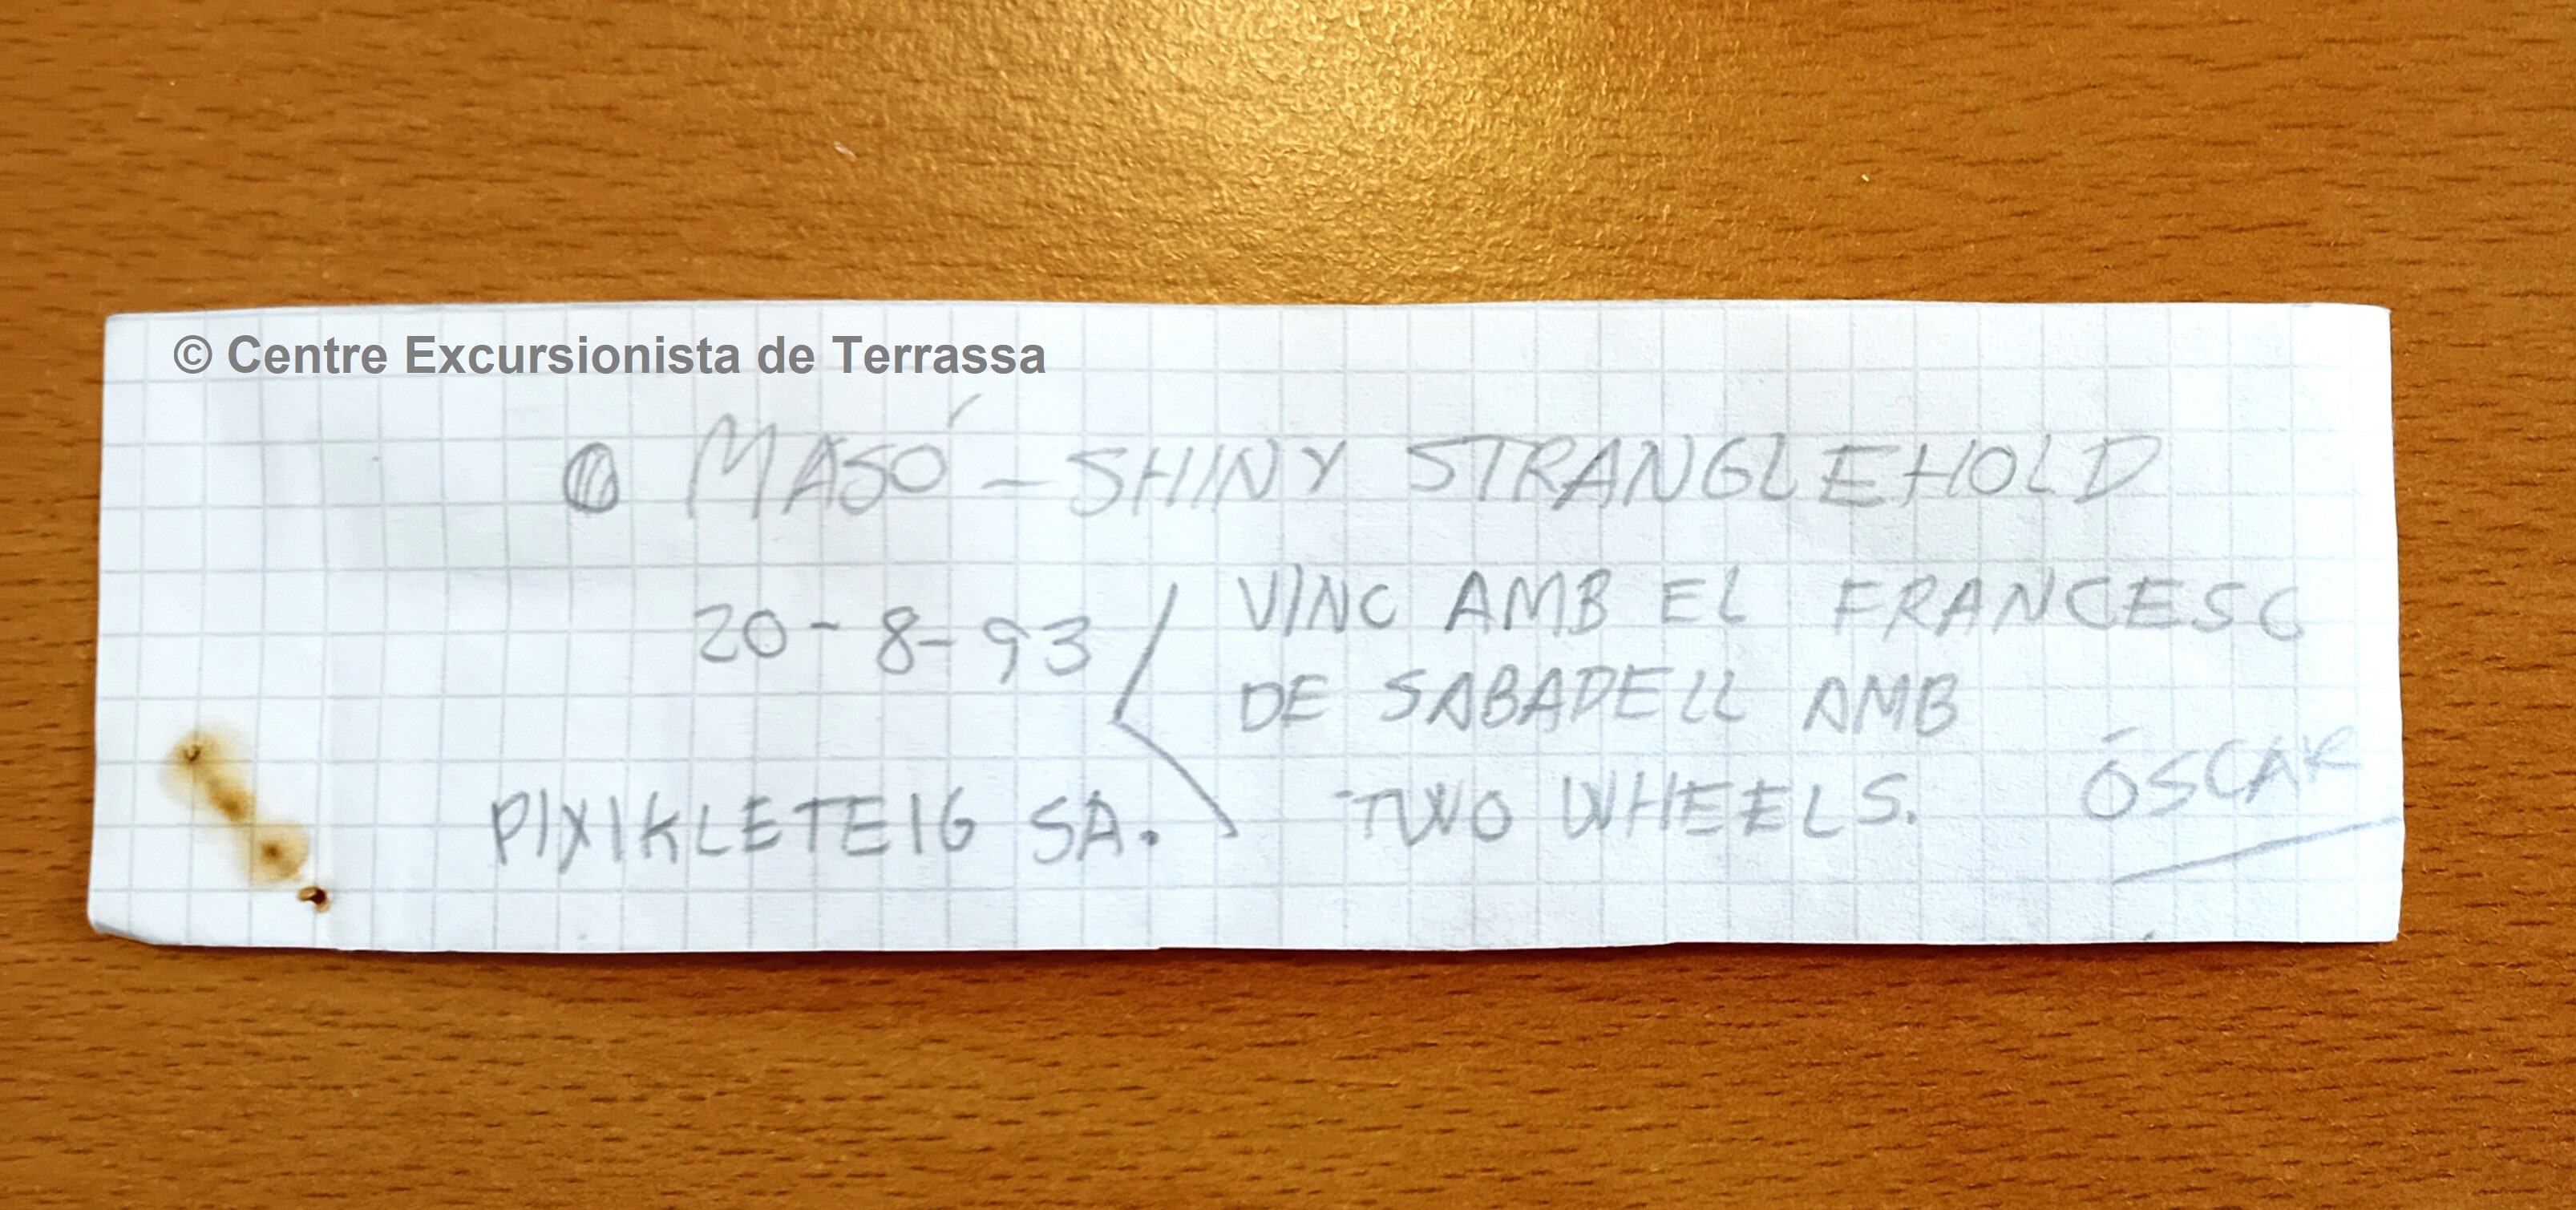 © Centre Excursionista de Terrassa
MASÓ - SHINY STRANGLEHOLD
20-8-93
VINC AMB EL FRANCESC
DE SABADELL AMB
TWO WHEELS.
ÓSCAR
PIXIKLETEIG SA.